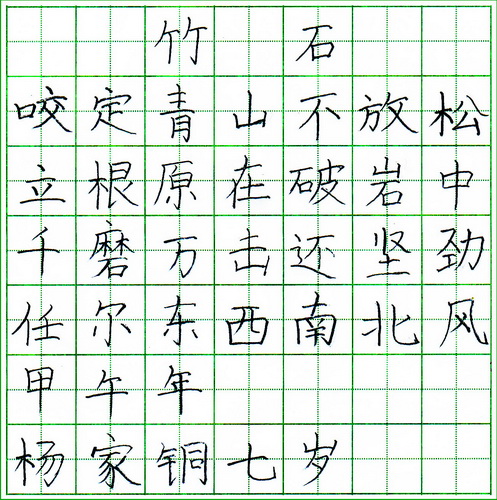 竹石
咬定青山不放松
立根原在破岩中
千磨万击还坚劲
任尔东西南北风
甲午年
杨家铜七岁